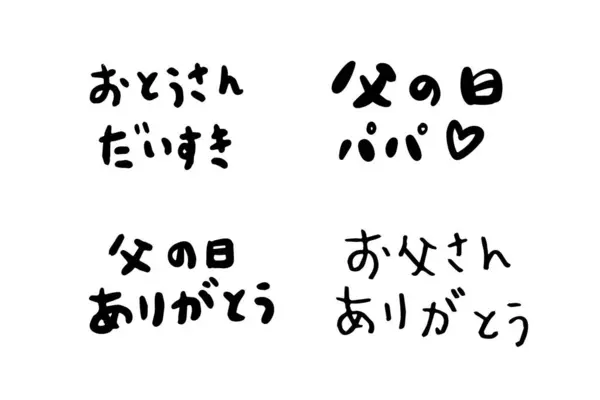 おとうさん
だいすき
父の日
パパ♡
父の日
ありがとう
お父さん
ありがとう